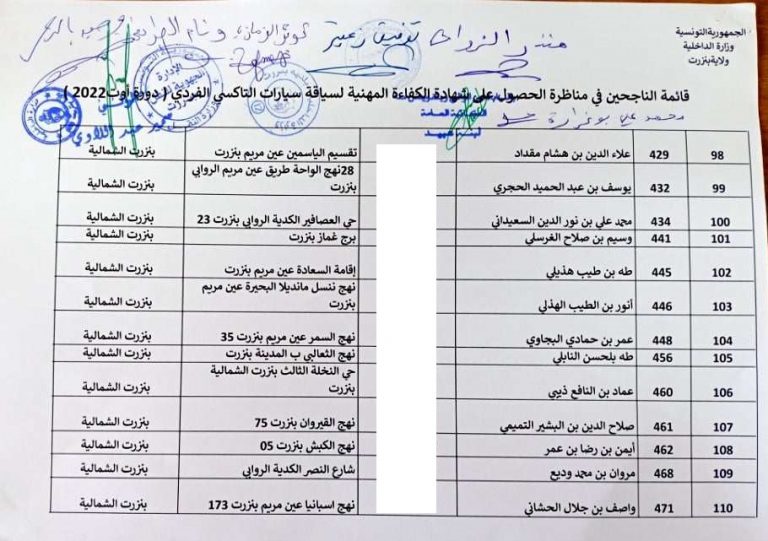 الجمهورية التونسية
وزارة الداخلية
ولاية بنزرت
منذر الزواي توفيق زعيتر
قائمة الناجحين في مناظرة الحصول على شهادة الكفاءة المهنية لسياقة سيارات التاكسي الفردي ( دورة أوت 2022 )
محمد علي بوغرارة
98 429 علاء الدين بن هشام مقداد تقسيم الياسمين عين مريم بنزرت بنزرت الشمالية
99 432 يوسف بن عبد الحميد الحجري 28نهج الواحة طريق عين مريم الروابي بنزرت بنزرت الشمالية
100 434 محمد علي بن نور الدين السعيداني حي العصافير الكدية الروابي بنزرت 23 بنزرت الشمالية
101 441 وسيم بن صلاح الغرسلي برج غماز بنزرت بنزرت الشمالية
102 445 طه بن طيب هذيلي إقامة السعادة عين مريم بنزرت بنزرت الشمالية
103 446 أنور بن الطيب الهذلي نهج ننسل مانديلا البحيرة عين مريم بنزرت بنزرت الشمالية
104 448 عمر بن حمادي البجاوي نهج السمر عين مريم بنزرت 35 بنزرت الشمالية
105 456 طه بلحسن النابلي نهج الثعالبي ب المدينة بنزرت بنزرت الشمالية
106 460 عماد بن النافع ذيبي حي النخلة الثالث بنزرت الشمالية بنزرت بنزرت الشمالية
107 461 صلاح الدين بن البشير التميمي نهج القيروان بنزرت 75 بنزرت الشمالية
108 462 أيمن بن رضا بن عمر نهج الكبش بنزرت 05 بنزرت الشمالية
109 468 مروان بن محمد وديع شارع النصر الكدية الروابي بنزرت الشمالية
110 471 واصف بن جلال الحشاني نهج اسبانيا عين مريم بنزرت 173 بنزرت الشمالية